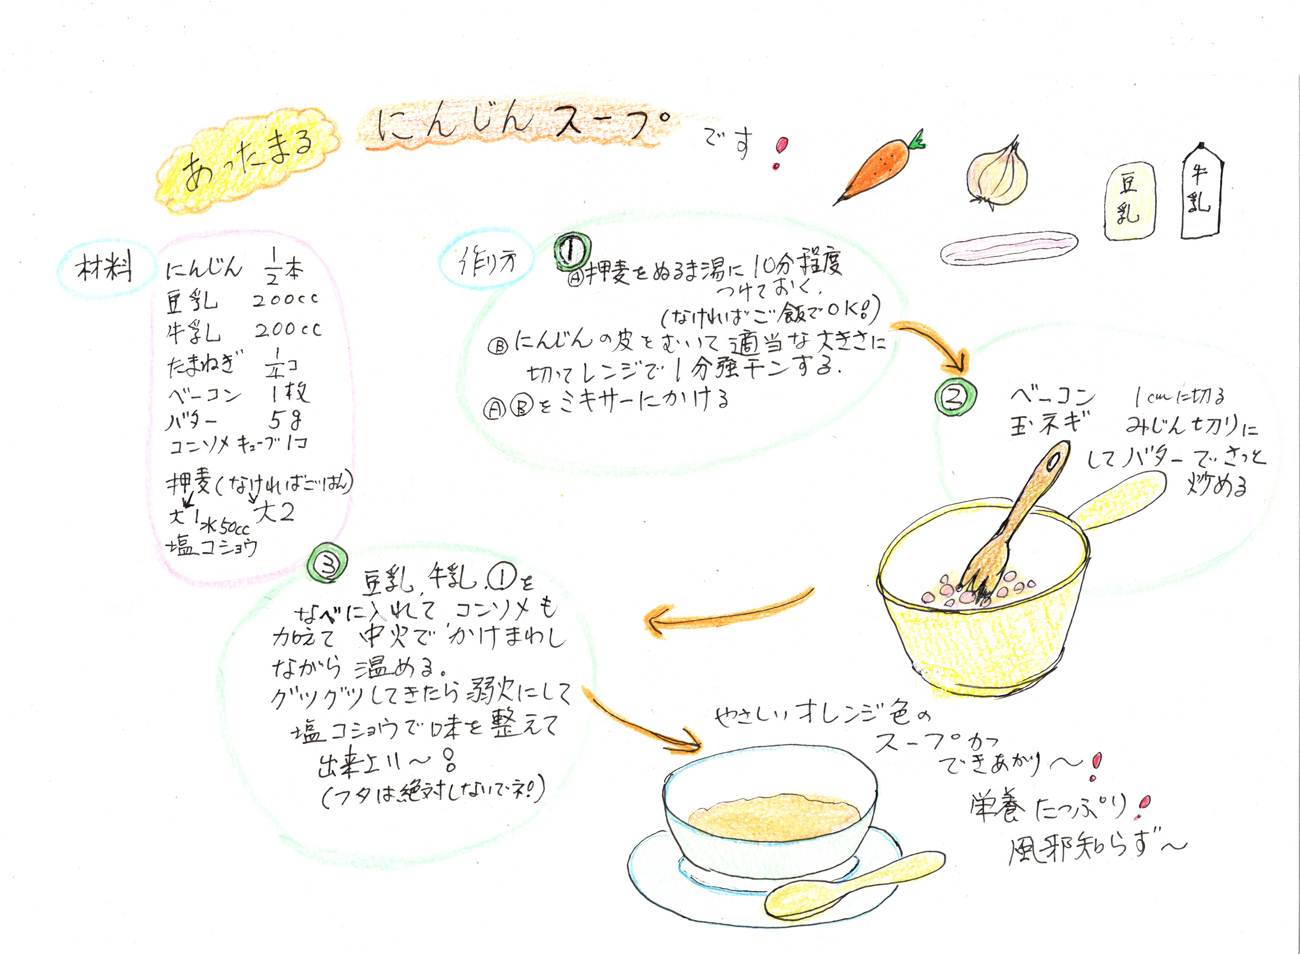 あったまる
にんじんスープ
です!
豆乳
牛乳
材料
にんじん 1/2本
豆乳 200cc
牛乳 200cc
たまねぎ 1/4コ
ベーコン 1枚
バター 5g
コンソメキューブ1コ
押麦(なければごはん)
大1 水50cc 大2
塩コショウ
作り方
①
Ⓐ押麦をぬるま湯に10分程度
つけておく.
(なければご飯でOK!)
Ⓑにんじんの皮をむいて適当な大きさに
切ってレンジで1分強チンする.
ⒶⒷをミキサーにかける
②
ベーコン 1cmに切る
玉ネギ みじん切りに
してバターでさっと
炒める
③
豆乳,牛乳,①を
なべに入れてコンソメも
加えて中火でかけまわし
ながら温める。
グツグツしてきたら弱火にして
塩コショウで味を整えて
出来上り〜!
(フタは絶対しないでネ!)
やさしいオレンジ色の
スープが
できあがり〜!
栄養たっぷり!
風邪知らず〜